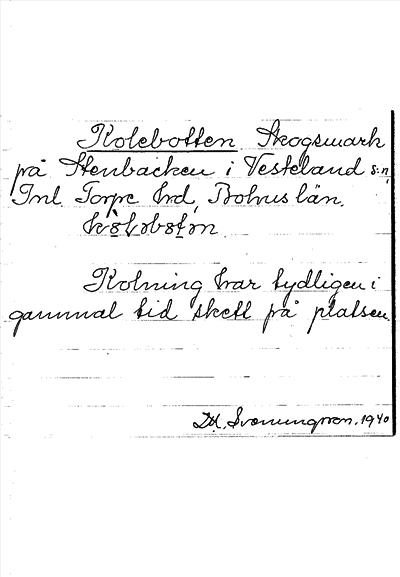 Kolebotten Skogsmark
på Stenbacken i Vesteland s:n,
Inl. Torpe hrd, Bohus län.
Kolning har tydligen i
gammal tid skett på platsen.
D.A. Svenningsson. 1940